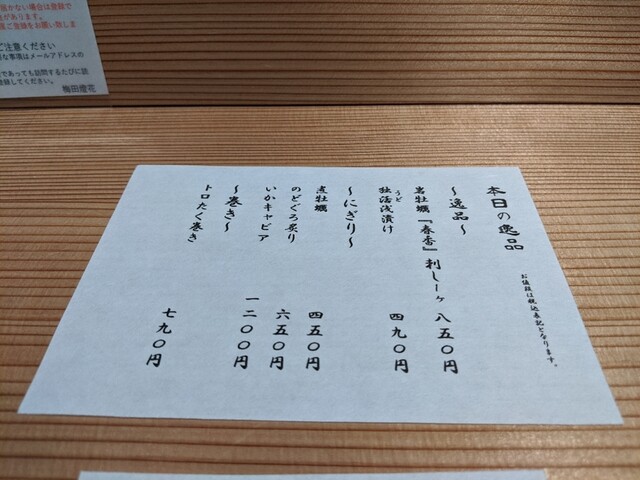 かない場合は登録で
があります。
ご登録をお願い致しま
ご注意ください
な事項はメールアドレスの
であっても訪問するたびに
登録してください。
梅田燈花
本日の逸品
お値段は税込表記となります。
〜逸品〜
岩牡蠣『春香』刺し一ヶ 八五〇円
うど
独活浅漬け 四九〇円
〜にぎり〜
煮牡蠣 四五〇円
のどぐろ炙り 六五〇円
いかキャビア 一二〇〇円
〜巻き〜
トロたく巻き 七九〇円